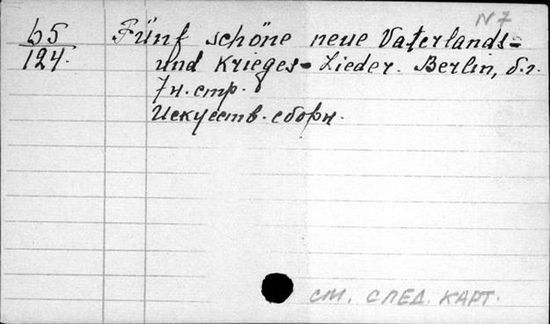 N 7
b5 Fünf schöne neue Vaterlands=
124. und Krieges=Lieder. Berlin, б.г.
7 н. стр.
Искусств. сборн.
см. след. карт.